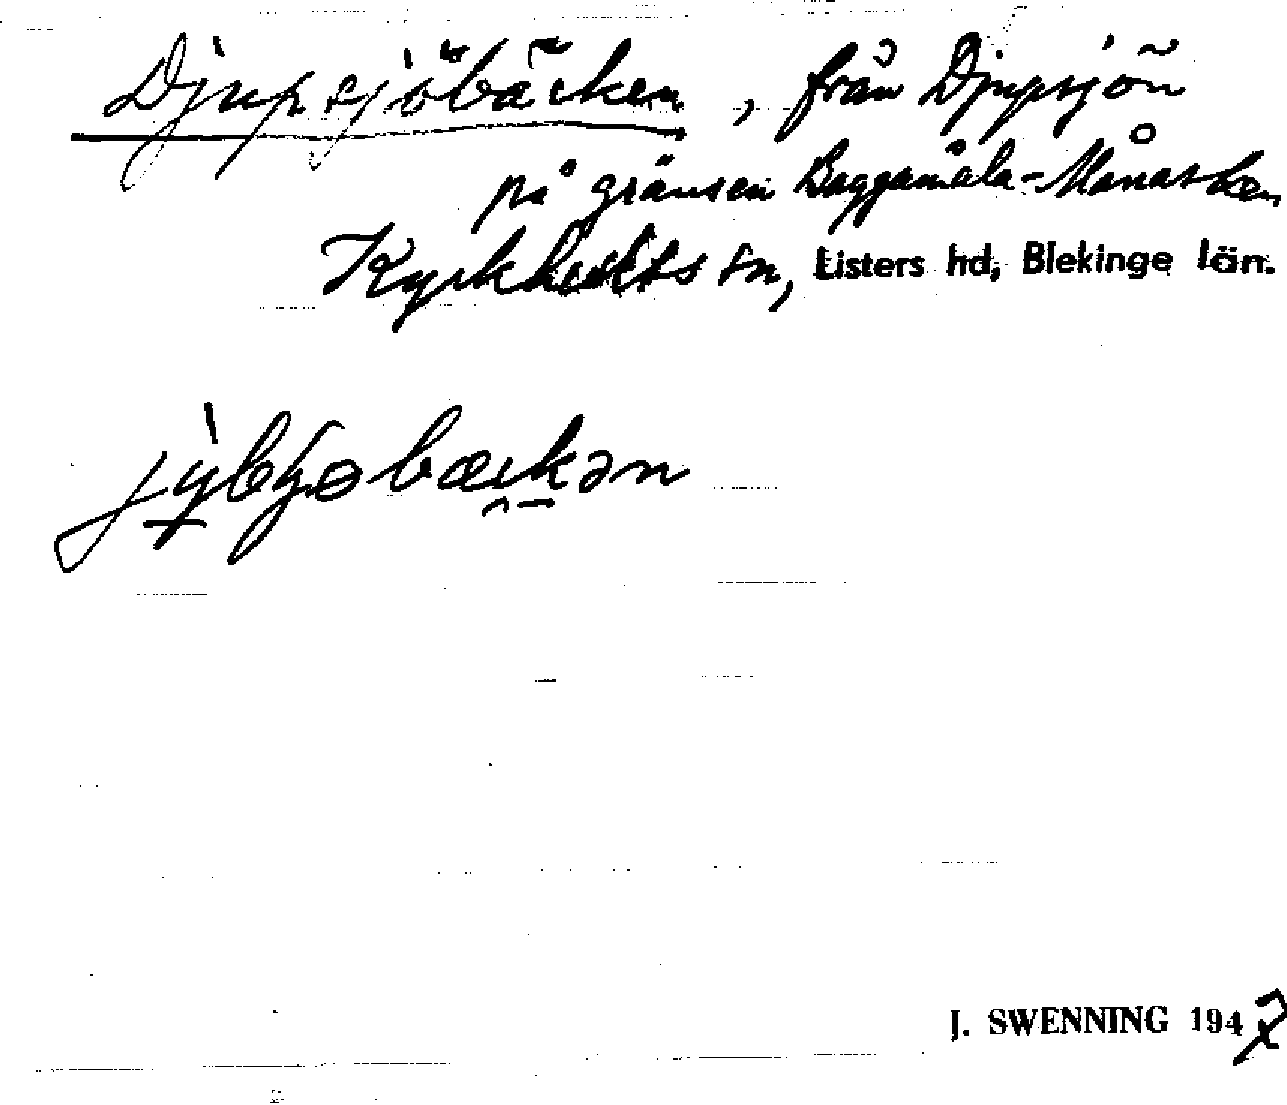 Djupsjöbäcken, från Djupsjön
på gränsen Baggamåla-Månasken
Kyrkhults sn, Listers hd, Blekinge län.
J. SWENNING 1947